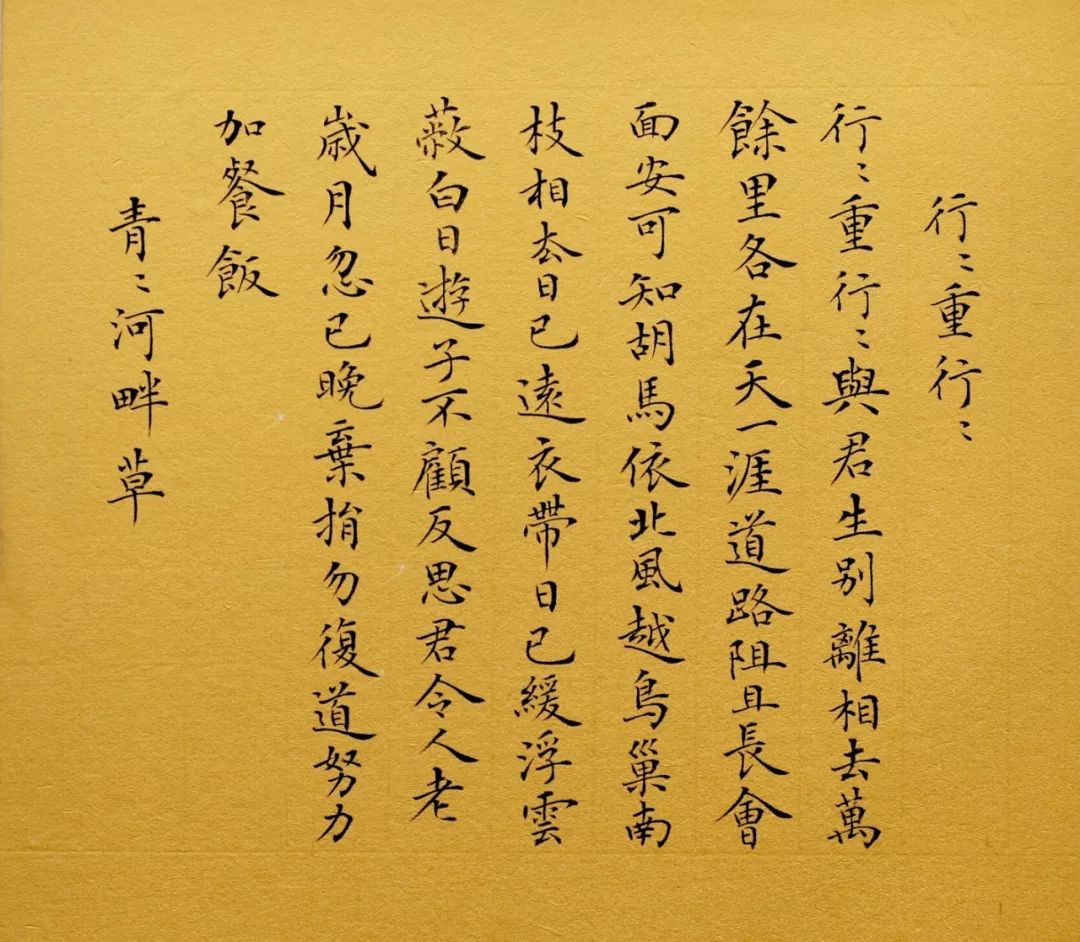 行〻重行〻
行〻重行〻與君生别離相去萬
餘里各在天一涯道路阻且長會
面安可知胡馬依北風越鳥巢南
枝相去日已遠衣帶日已緩浮雲
蔽白日遊子不顧反思君令人老
歲月忽已晚棄捐勿復道努力
加餐飯
青〻河畔草